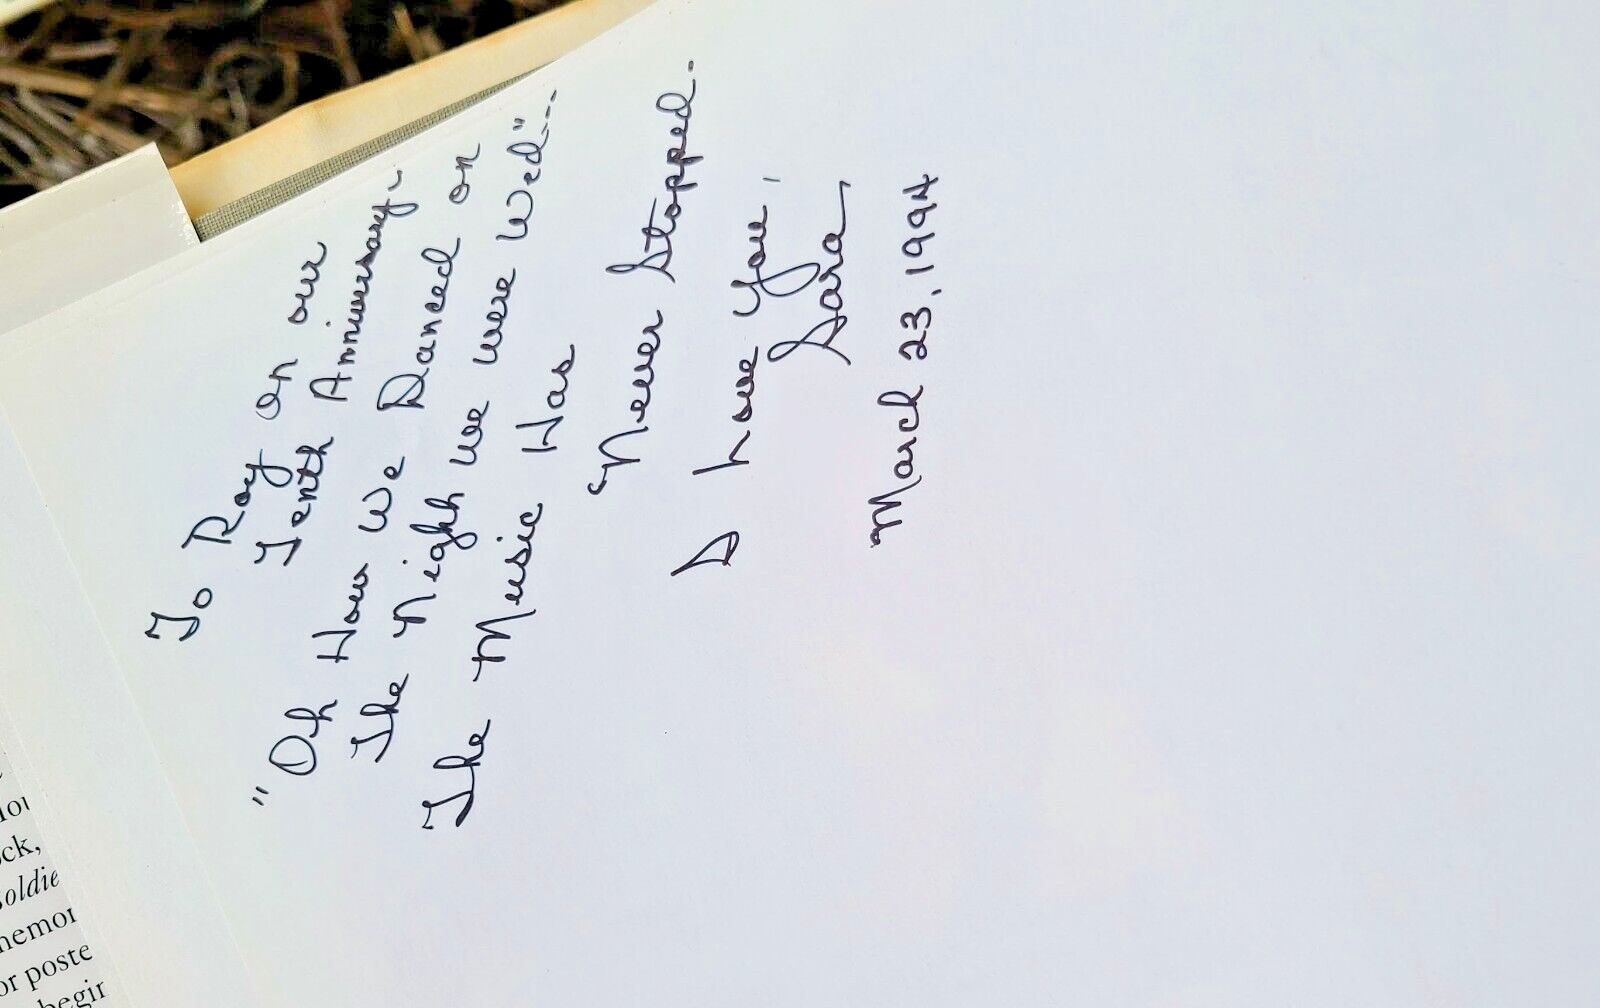 To Roy on our
Tenth Anniversary -
"Oh How We Danced on
The Night We were Wed"...
The Music Has
"Never Stopped.
I Love You,
Sara
March 23, 1994
ck,
or poste